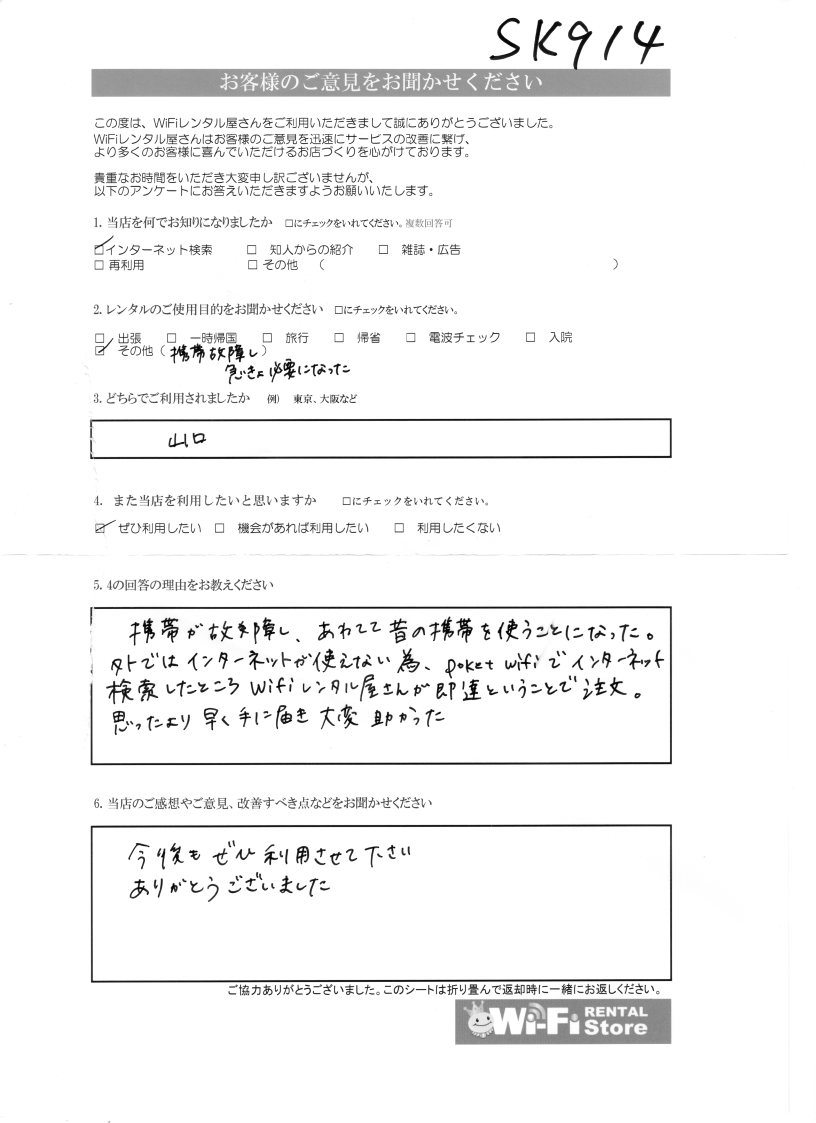 SK914
お客様のご意見をお聞かせください
この度は、WiFiレンタル屋さんをご利用いただきまして誠にありがとうございました。
WiFiレンタル屋さんはお客様のご意見を迅速にサービスの改善に繋げ、
より多くのお客様に喜んでいただけるお店づくりを心がけております。
貴重なお時間をいただき大変申し訳ございませんが、
以下のアンケートにお答えいただきますようお願いいたします。
1. 当店を何でお知りになりましたか □にチェックをいれてください。複数回答可
☑インターネット検索 □ 知人からの紹介 □ 雑誌・広告
□ 再利用 □ その他 ( )
2. レンタルのご使用目的をお聞かせください □にチェックをいれてください。
□ 出張 □ 一時帰国 □ 旅行 □ 帰省 □ 電波チェック □ 入院
☑ その他 ( 携帯故障し )
急きょ必要になった
3. どちらでご利用されましたか 例) 東京、大阪など
山口
4. また当店を利用したいと思いますか □にチェックをいれてください。
☑ ぜひ利用したい □ 機会があれば利用したい □ 利用したくない
5. 4の回答の理由をお教えください
携帯が故障し、あわてて昔の携帯を使うことになった。
外ではインターネットが使えない為、poket wifiでインターネット
検索したところWifiレンタル屋さんが即達ということで注文。
思ったより早く手に届き大変助かった
6. 当店のご感想やご意見、改善すべき点などをお聞かせください
今後もぜひ利用させて下さい
ありがとうございました
ご協力ありがとうございました。このシートは折り畳んで返却時に一緒にお返しください。
Wi-Fi RENTAL Store